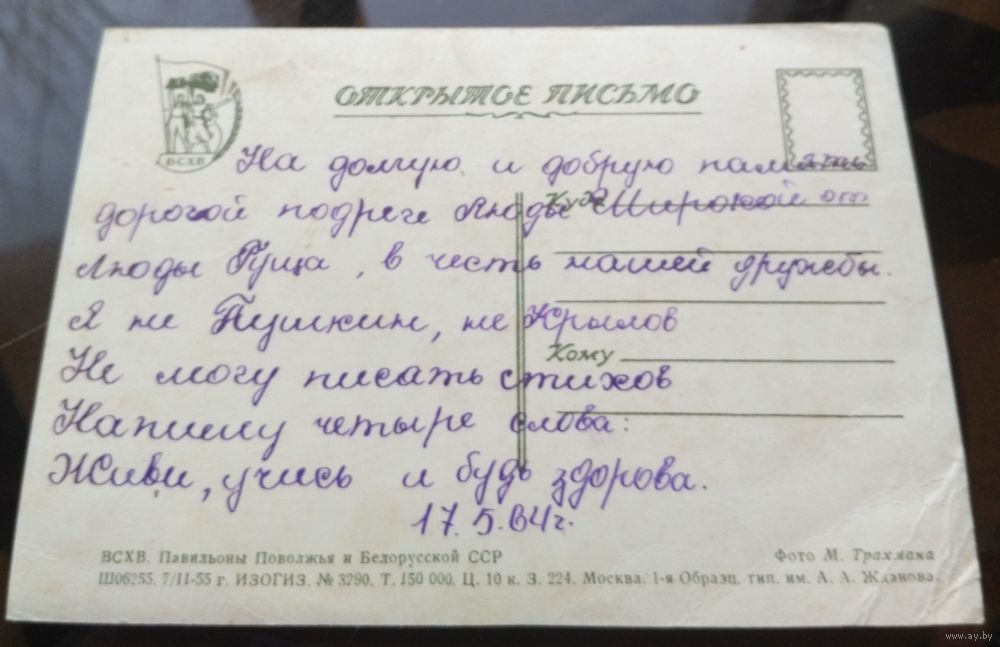 ВСХВ
ОТКРЫТОЕ ПИСЬМО
На долгую и добрую память
дорогой подреге Люды Широкой от
Люды Гуща, в честь нашей дружбы.
Я не Пушкин, не Крылов
Не могу писать стихов
Напишу четыре слова:
Живи, учись и будь здорова.
17.5.64г.
Куда
Кому
ВСХВ. Павильоны Поволжья и Белорусской ССР
Фото М. Трахмана
Ш06255. 7/II-55 г. ИЗОГИЗ. № 3290. Т. 150 000. Ц. 10 к. З. 224. Москва. 1-я Образц. тип. им. А. А. Жданова.
www.ay.by